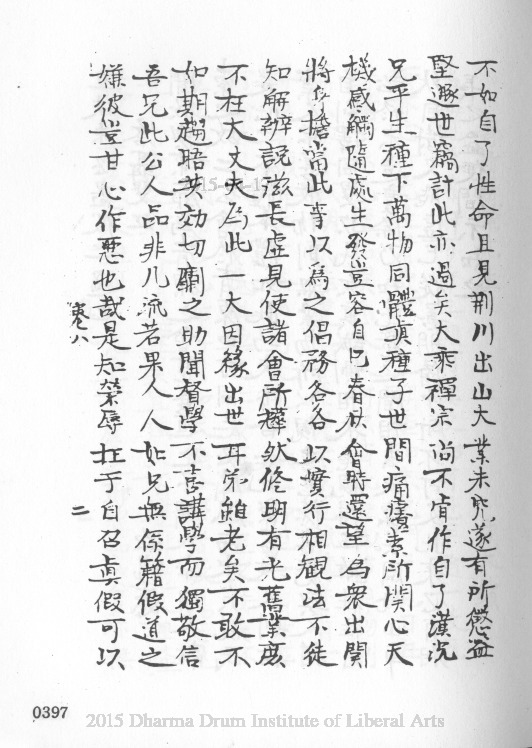 不如自了性命且見荆川出山大業未究遂有所懲益
堅遯世竊計此亦過矣大乘禪宗尚不肯作自了漢况
兄平生種下萬物同體真種子世間痛癢素所關心天
機感觸隨處生發豈容自已春秋會時還望為衆出関
將身擔當此事以為之倡務各各以實行相観法不徒
知解辨說滋長虛見使諸會所翕然修明有光舊業庶
不枉大丈夫為此一大因緣出世耳弟雖老矣不敢不
如期趨晤共效切劘之助聞督學不喜講學而獨敬信
吾兄此公人品非凡流若果人人如兄無係籍假道之
嫌彼豈甘心作惡也哉是知榮辱在于自召真假可以
卷八
二
0397
2015 Dharma Drum Institute of Liberal Arts